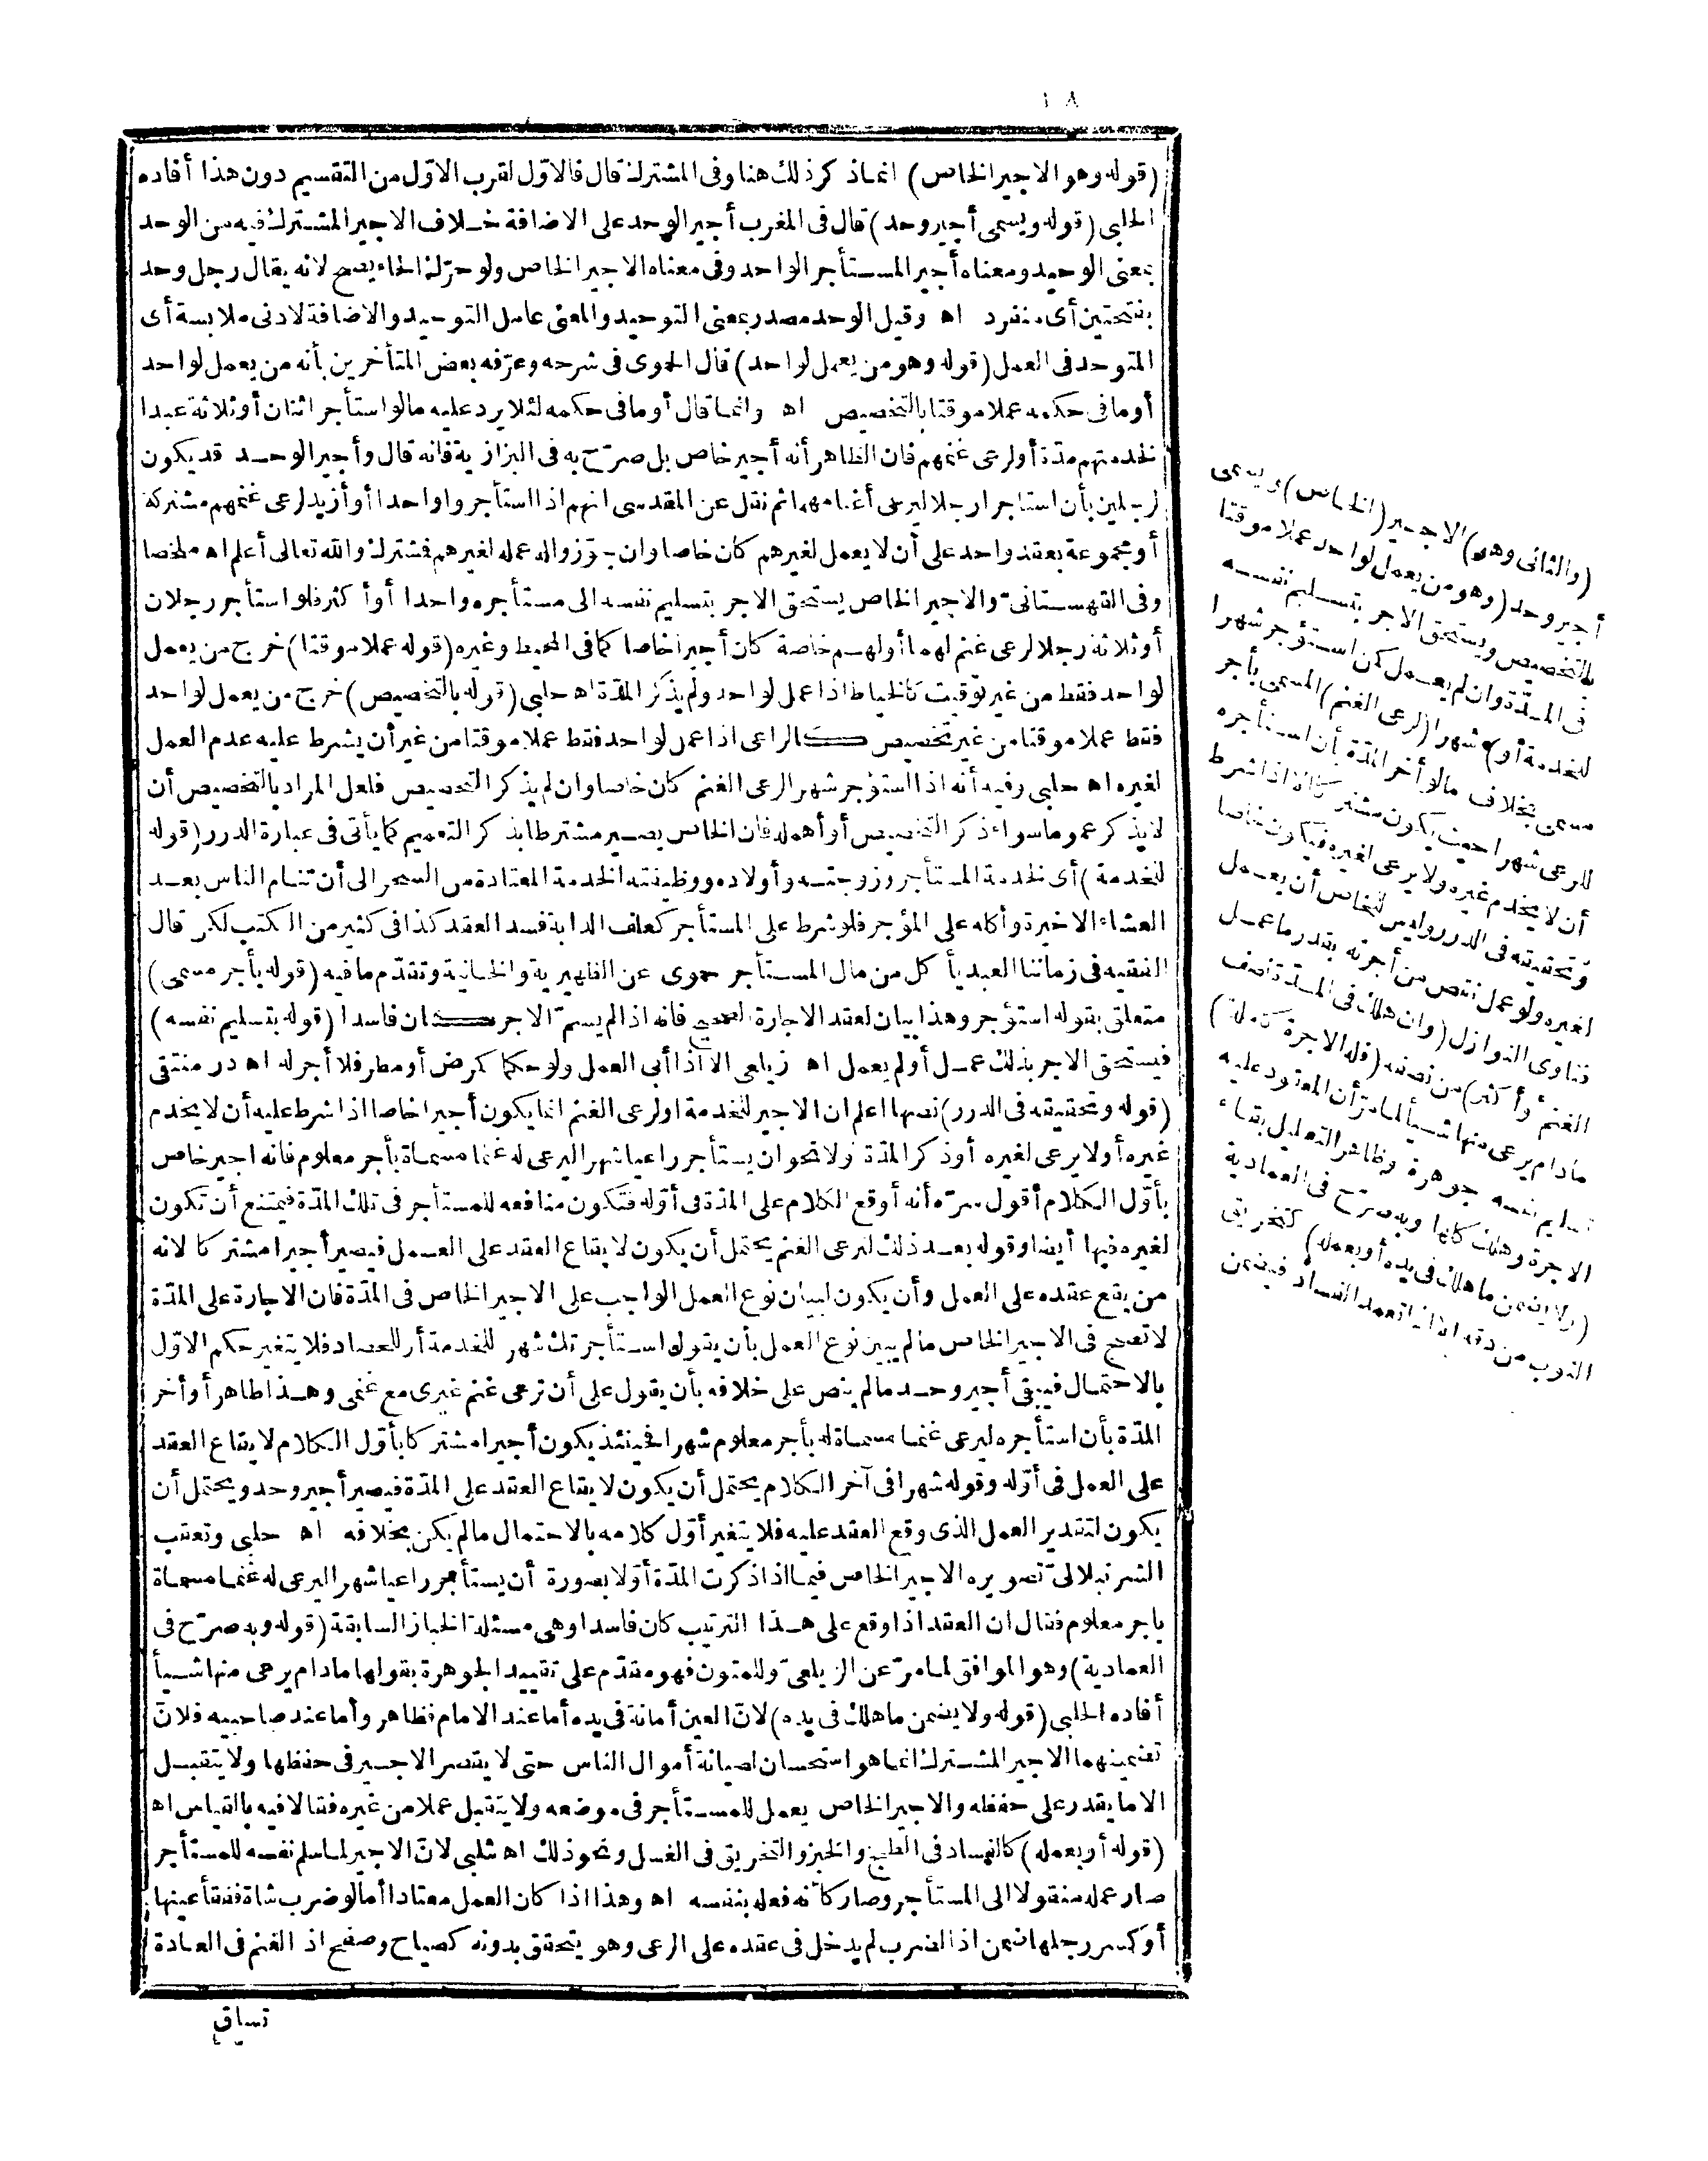 (قوله وهو الاجير الخاص) انما ذكر ذلك هنا وفى المشترك قال فالاوّل لقرب الاوّل من التقسيم دون هذا أفاده
الحلبى (قوله ويسمى أجير وحد) قال فى المغرب أجير الوحد على الاضافة خلاف الاجير المشترك فيه من الوحد
بمعنى الوحيد ومعناه أجير المستأجر الواحد وفى معناه الاجير الخاص ولو حرّك الحاء يصح لانه يقال رجل وحد
بفتحتين أى منفرد اه وقيل الوحد مصدر بمعنى التوحيد والمعنى عامل التوحيد والاضافة لادنى ملابسة أى
المتوحد فى العمل (قوله وهو من يعمل لواحد) قال الحموى فى شرحه وعرّفه بعض المتأخرين بأنه من يعمل لواحد
أو ما فى حكمه عملا موقتا بالتخصيص اه وانما قال أو ما فى حكمه لئلا يرد عليه ما لو استأجر اثنان أو ثلاثة عبدا
لخدمتهم مدّة أو لرعى غنمهم فان الظاهر أنه أجير خاص بل صرّح به فى البزازية فانه قال وأجير الوحد قد يكون
لرجلين بأن استاجرا رجلا ليرعى أغنامهما ثم نقل عن المقدسى انهم اذا استأجروا واحدا أو أزيد لرعى غنمهم مشتركة
أو مجموعة بعقد واحد على أن لا يعمل لغيرهم كان خاصا وان جوّزوا له عمله لغيرهم فمشترك والله تعالى أعلم اه ملخصا
وفى القهستانىّ والاجير الخاص يستحق الاجر بتسليم نفسه الى مستأجره واحدا أو أكثر فلو استأجر رجلان
أو ثلاثة رجلا لرعى غنم لهما أو لهم خاصة كان أجيرا خاصا كما فى المحيط وغيره (قوله عملا موقتا) خرج من يعمل
لواحد فقط من غير توقيت كالخياط اذا عمل لواحد ولم يذكر المدّة اه حلبى (قوله بالتخصيص) خرج من يعمل لواحد
فقط عملا موقتا من غير تخصيص كالراعى اذا عمل لواحد فقط عملا موقتا من غير أن يشرط عليه عدم العمل
لغيره اه حلبى وفيه أنه اذا استؤجر شهرا لرعى الغنم كان خاصا وان لم يذكر التخصيص فلعل المراد بالتخصيص أن
لا يذكر عموما سواء ذكر التخصيص أو أهمله فان الخاص يصير مشتركا بذكر التعميم كما يأتى فى عبارة الدرر (قوله
للخدمة) أى لخدمة المستأجر وزوجته وأولاده ووظيفته الخدمة المعتادة من السحر الى أن تنام الناس بعد
العشاء الاخيرة وأكله على المؤجر فلو شرط على المستأجر كعلف الدابة فسد العقد كذا فى كثير من الكتب لكن قال
الفقيه فى زماننا العبد يأكل من مال المستأجر حموى عن الظهيرية والخانية وتقدّم ما فيه (قوله بأجر مسمى)
متعلق بقوله استؤجر وهذا بيان لعقد الاجارة الصحيح فانه اذا لم يسمّ الاجر كان فاسدا (قوله بتسليم نفسه)
فيستحق الاجر بذلك عمل أو لم يعمل اه زيلعى الا اذا أبى العمل ولو حكما كمرض أو مطر فلا أجر له اه در منتقى
(قوله وتحقيقه فى الدرر) نصها اعلم ان الاجير للخدمة او لرعى الغنم انما يكون أجيرا خاصا اذا شرط عليه أن لا يخدم
غيره أو لا يرعى لغيره أو ذكر المدّة أولا نحو ان يستأجر راعيا شهرا ليرعى له غنما مسماة بأجر معلوم فانه اجير خاص
بأوّل الكلام أقول سرّه أنه أوقع الكلام على المدّة فى أوّله فتكون منافعه للمستأجر فى تلك المدّة فيمتنع أن تكون
لغيره فيها أيضا وقوله بعد ذلك لترعى الغنم يحتمل أن يكون لايقاع العقد على العمل فيصير أجيرا مشتركا لانه
من يقع عقده على العمل وأن يكون لبيان نوع العمل الواجب على الاجير الخاص فى المدّة فان الاجارة على المدّة
لا تصح فى الاجير الخاص ما لم يبين نوع العمل بأن يقول استأجرتك شهر للخدمة أو للحصاد فلا يتغير حكم الاوّل
بالاحتمال فيبقى أجير وحد ما لم ينص على خلافه بأن يقول على أن ترعى غنم غيرى مع غنمى وهذا ظاهر أو أخر
المدّة بأن استأجره ليرعى غنما مسماة له بأجر معلوم شهرا فحينئذ يكون أجيرا مشتركا بأوّل الكلام لايقاع العقد
على العمل فى أوّله وقوله شهرا فى آخر الكلام يحتمل أن يكون لايقاع العقد على المدّة فيصير أجير وحد ويحتمل أن
يكون لتقدير العمل الذى وقع العقد عليه فلا يتغير أوّل كلامه بالاحتمال ما لم يكن بخلافه اه حلبى وتعقب
الشرنبلالىّ تصويره الاجير الخاص فيما اذا ذكرت المدّة أوّلا بصورة أن يستأجر راعيا شهرا ليرعى له غنما مسماة
باجر معلوم فقال ان العقد اذا وقع على هذا الترتيب كان فاسدا وهى مسئلة الخباز السابقة (قوله وبه صرّح فى
العمادية) وهو الموافق لما مرّ عن الزيلعىّ وللمتون فهو مقدّم على تقييد الجوهرة بقولها مادام يرعى منها شيأ
أفاده الحلبى (قوله ولا يضمن ما هلك فى يده) لانّ العين أمانة فى يده أما عند الامام فظاهر وأما عند صاحبيه فلانّ
تضمينهما الاجير المشترك انما هو استحسان لصيانة أموال الناس حتى لا يقصر الاجير فى حفظها ولا يتقبل
الا ما يقدر على حفظه والاجير الخاص يعمل للمستأجر فى موضعه ولا يتقبل عملا من غيره فقالا فيه بالقياس اه
(قوله أو بعمله) كالفساد فى الطبخ والخبز والتخريق فى الغسل ونحو ذلك اه شلبى لانّ الاجير لما سلم نفسه للمستأجر
صار عمله منقولا الى المستأجر وصار كأنه فعله بنفسه اه وهذا اذا كان العمل معتادا أما لو ضرب شاة ففقأ عينها
أو كسر رجلها ضمن اذ الضرب لم يدخل فى عقده على الرعى وهو يتحقق بدونه كصياح وصفح اذ الغنم فى العادة
تساق
(والثانى وهو) الاجير (الخاص) ويسمى
أجير وحد (وهو من يعمل لواحد عملا موقتا
بالتخصيص ويستحق الاجر بتسليم نفسه
فى المدّة وان لم يعمل كمن استؤجر شهرا
للخدمة أو) شهرا (لرعى الغنم) المسمى بأجر
مسمى بخلاف ما لو أخر المدّة بأن استأجره
للرعى شهرا حيث يكون مشتركا الا اذا شرط
أن لا يخدم غيره ولا يرعى لغيره فيكون خاصا
وتحقيقه فى الدرر وليس للخاص أن يعمل
لغيره ولو عمل نقص من أجرته بقدر ما عمل
فتاوى النوازل (وان هلك فى المدّة نصف
الغنم أو أكثر) من نصفه (فله الاجرة كاملة)
مادام يرعى منها شيأ لما مرّ أن المعقود عليه
تسليم نفسه جوهرة وظاهر التعليل بقاء
الاجرة وهلك كلها وبه صرّح فى العمادية
(ولا يضمن ما هلك فى يده أو بعمله) كتخريق
الثوب من دقه الا اذا تعمد الفساد فيضمن